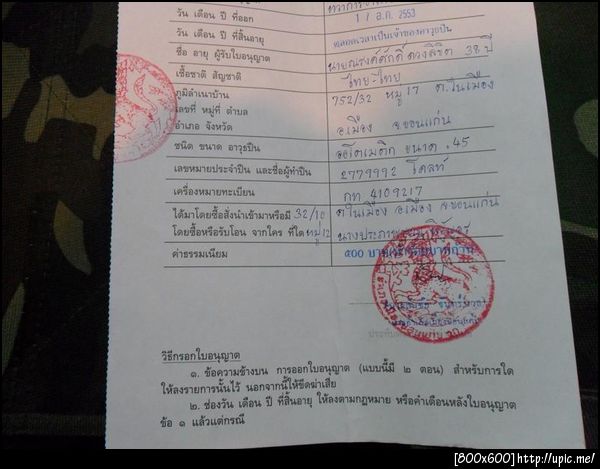 วัน เดือน ปี ที่ออก 17 ธ.ค. 2553
วัน เดือน ปี ที่สิ้นอายุ ตลอดเวลาเป็นเจ้าของอาวุธปืน
ชื่อ อายุ ผู้รับใบอนุญาต 38 ปี
เชื้อชาติ สัญชาติ ไทย-ไทย
ภูมิลำเนาบ้าน 752/32 หมู่ 17 ต.ในเมือง
เลขที่ หมู่ที่ ตำบล
อำเภอ จังหวัด อ.เมือง จ.ขอนแก่น
ชนิด ขนาด อาวุธปืน ออโตเมติก ขนาด .45
เลขหมายประจำปืน และชื่อผู้ทำปืน 2779992 โคลท์
เครื่องหมายทะเบียน กท 4109217
ได้มาโดยซื้อสั่งนำเข้ามาหรือมี 32/10 ต.ในเมือง อ.เมือง จ.ขอนแก่น
โดยซื้อหรือรับโอน จากใคร ที่ใด หมู่ 12
ค่าธรรมเนียม ๕๐๐ บาท
วิธีกรอกใบอนุญาต
๑. ข้อความข้างบน การออกใบอนุญาต (แบบนี้มี ๒ ตอน) สำหรับการใด
ให้ลงรายการนั้นไว้ นอกจากนี้ให้ขีดฆ่าเสีย
๒. ช่องวัน เดือน ปี ที่สิ้นอายุ ให้ลงตามกฎหมาย หรือคำเตือนหลังใบอนุญาต
ข้อ ๑ แล้วแต่กรณี
[800x600]http://upic.me/